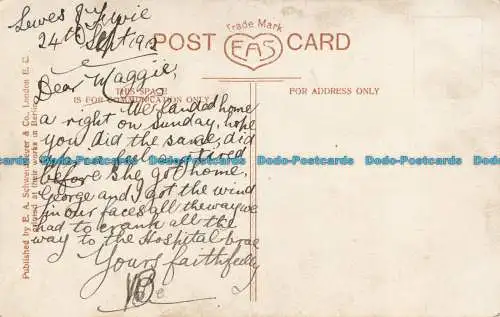 Lewes & Fyvie
24th Sept 1912
Trade Mark
EAS
POST CARD
THIS SPACE
IS FOR COMMUNICATION ONLY
FOR ADDRESS ONLY
Dear Maggie,
We landed home
a right on Sunday, hope
you did the same, did
tired
before she got home,
George and I got the wind
in our faces all the way we
had to crank all the
way to the Hospital brae
Yours faithfully
Published by E. A. Schwerdtfeger & Co., London E. C.
Printed at their works in Berlin
Dodo-Postcards Dodo-Postcards Dodo-Postcards Dodo-Postcards Dodo-Postcards